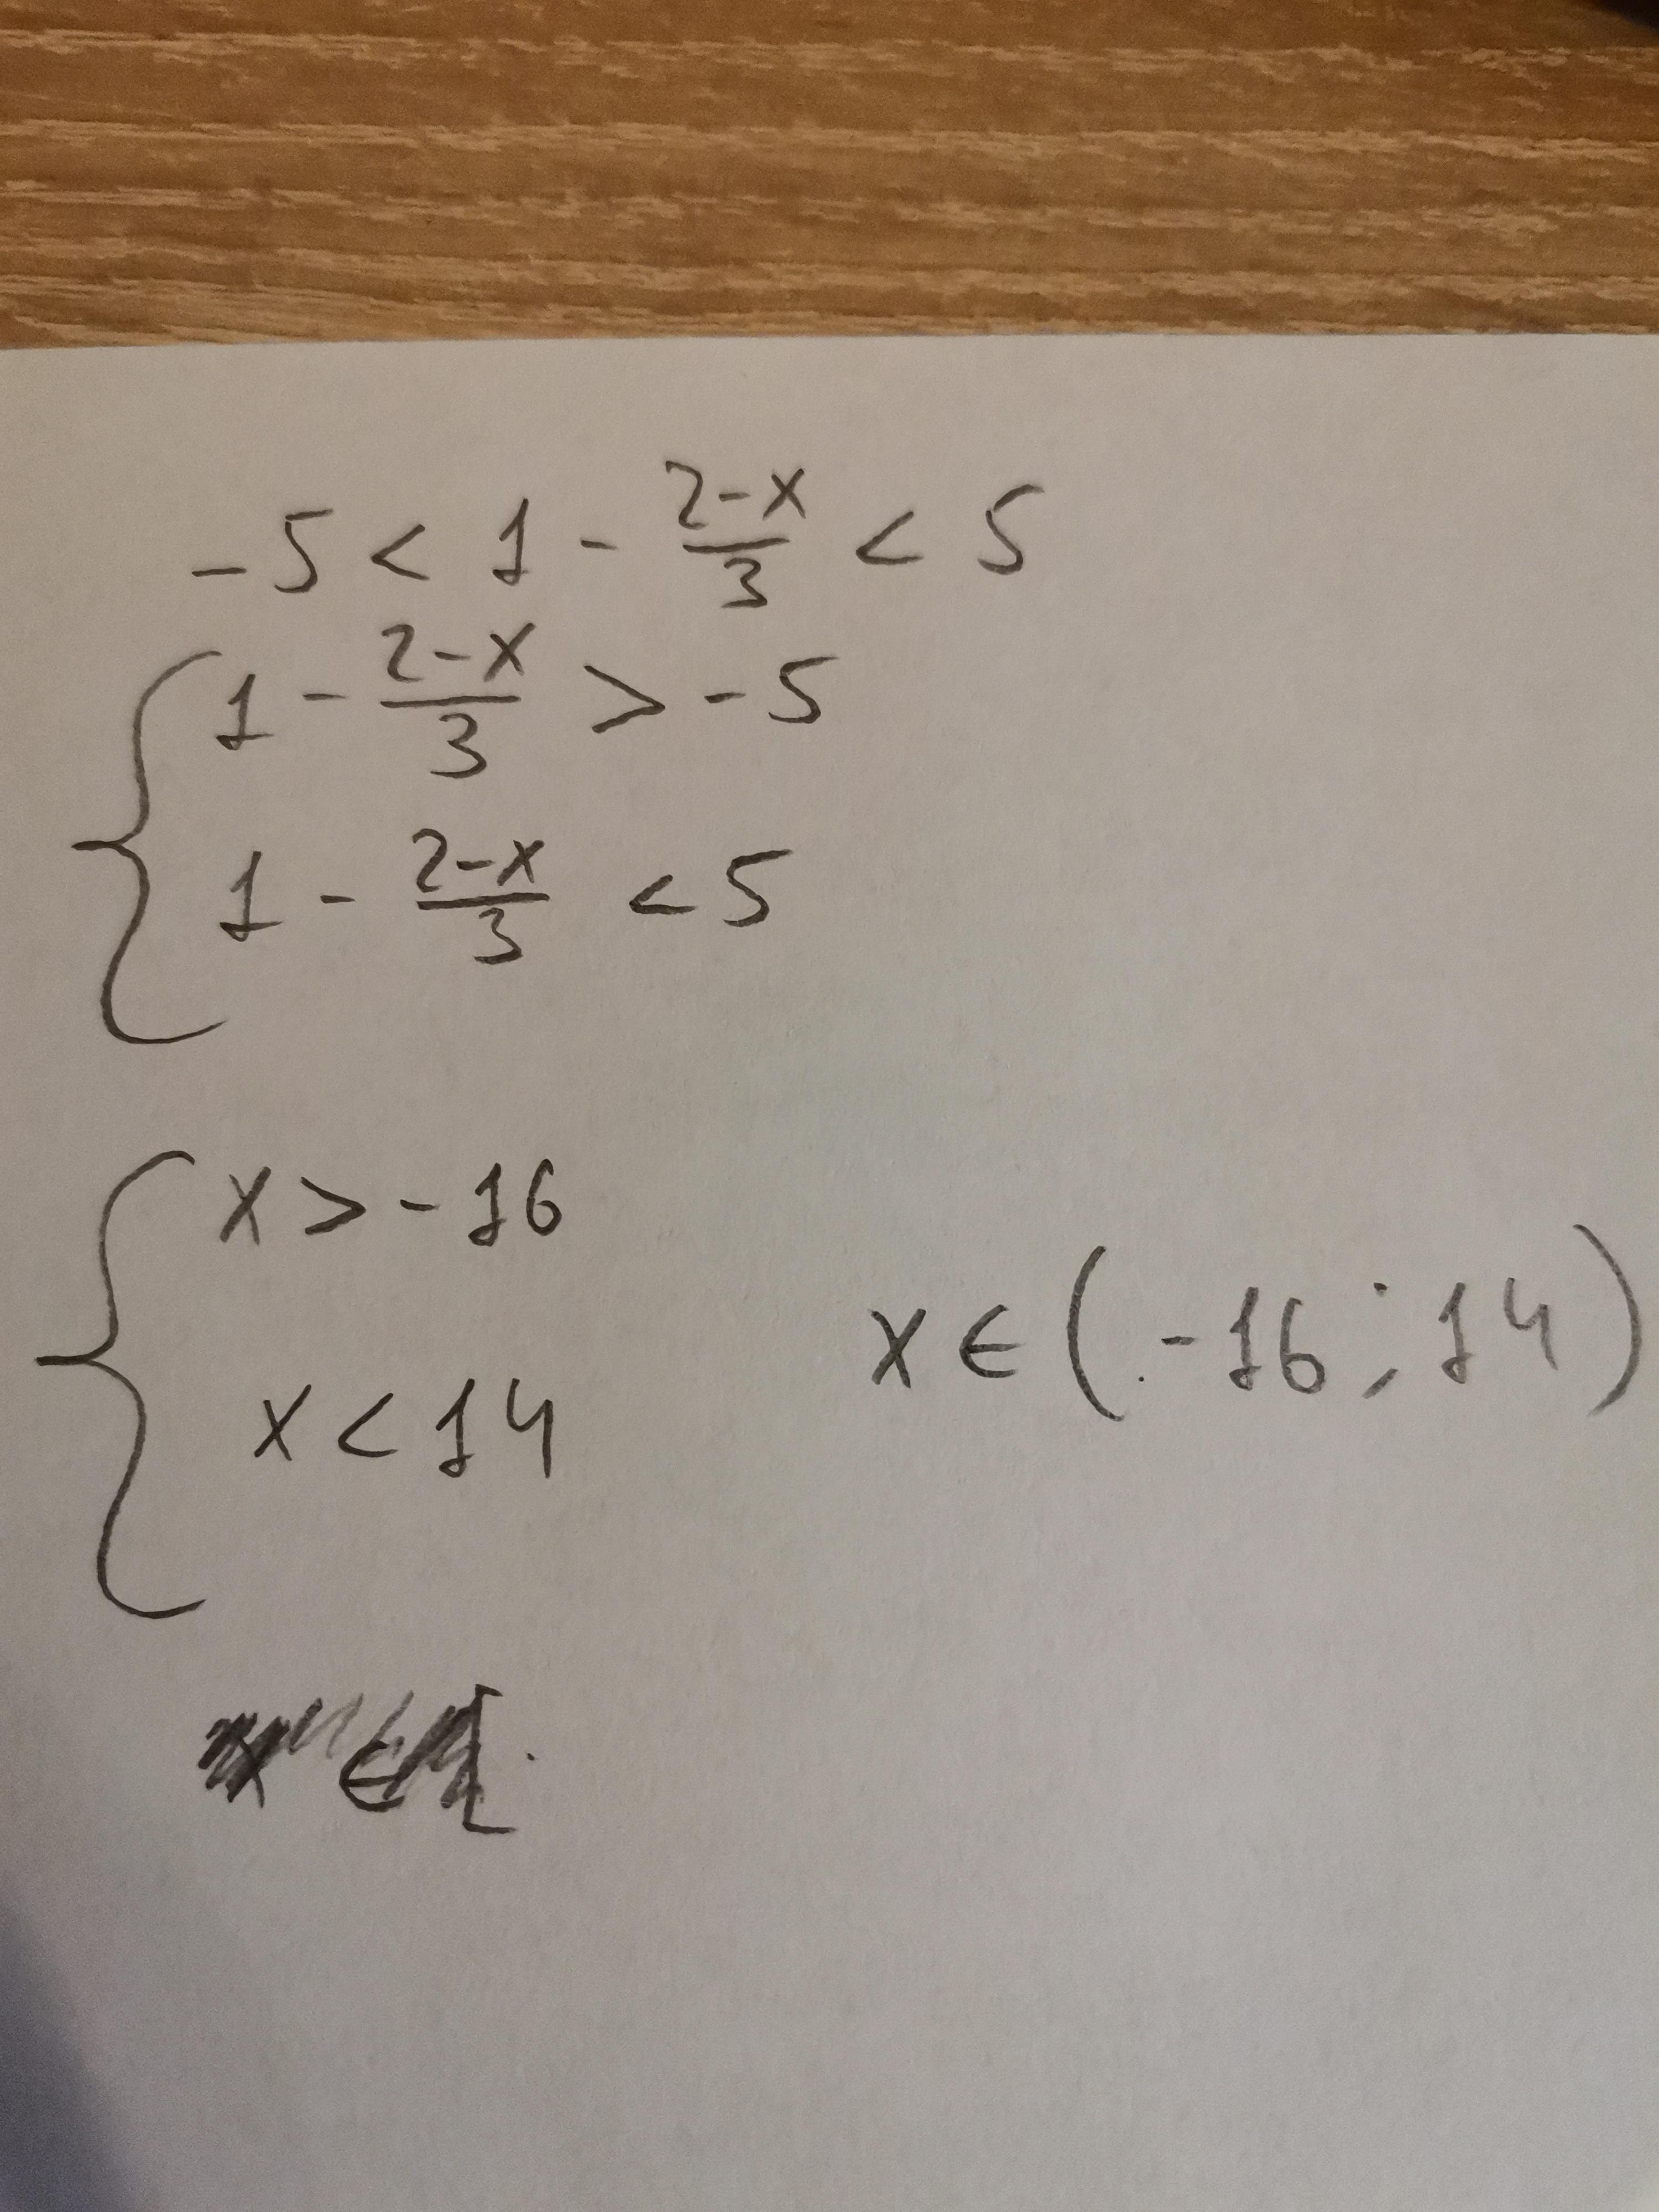 -5 < 1 - \frac{2-x}{3} < 5
1 - \frac{2-x}{3} > -5
1 - \frac{2-x}{3} < 5
x > -16
x < 14
x ∈ (-16; 14)
x ∈ [